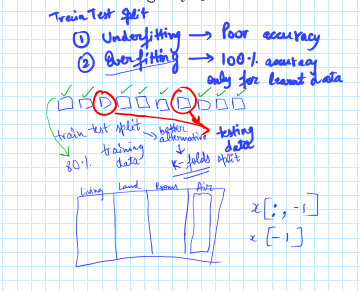 Train Test Split
① Underfitting → Poor accuracy
② Over-fitting → 100% accuracy
only for learnt data
train-test split → better alternative
testing data
80% training data
K-folds split
Living Land Rooms Air
x[:, -1]
x[-1]